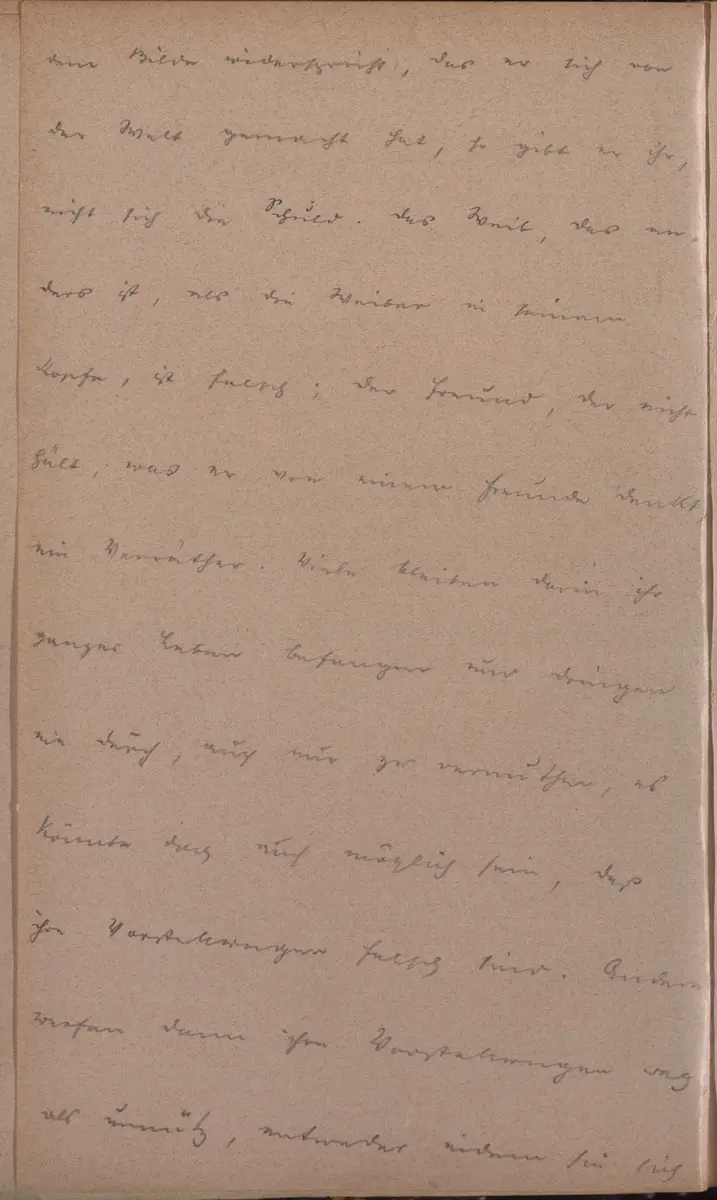 dem Bilde widerspricht, das er sich von
der Welt gemacht hat, so gibt er ihr,
nicht sich die Schuld. Das Weib, das an-
ders ist, als die Weiber in seinem
Kopfe, ist falsch; der Freund, der nicht
hält, was er von einem Freunde denkt,
ein Verräther. Viele bleiben darin ihr
ganzes Leben befangen und dringen
nie durch, auch nur zu vermuthen, es
könnte doch auch möglich sein, daß
ihre Vorstellungen falsch sind. Andere
werfen dann ihre Vorstellungen weg,
als unnütz, entweder indem sie sich